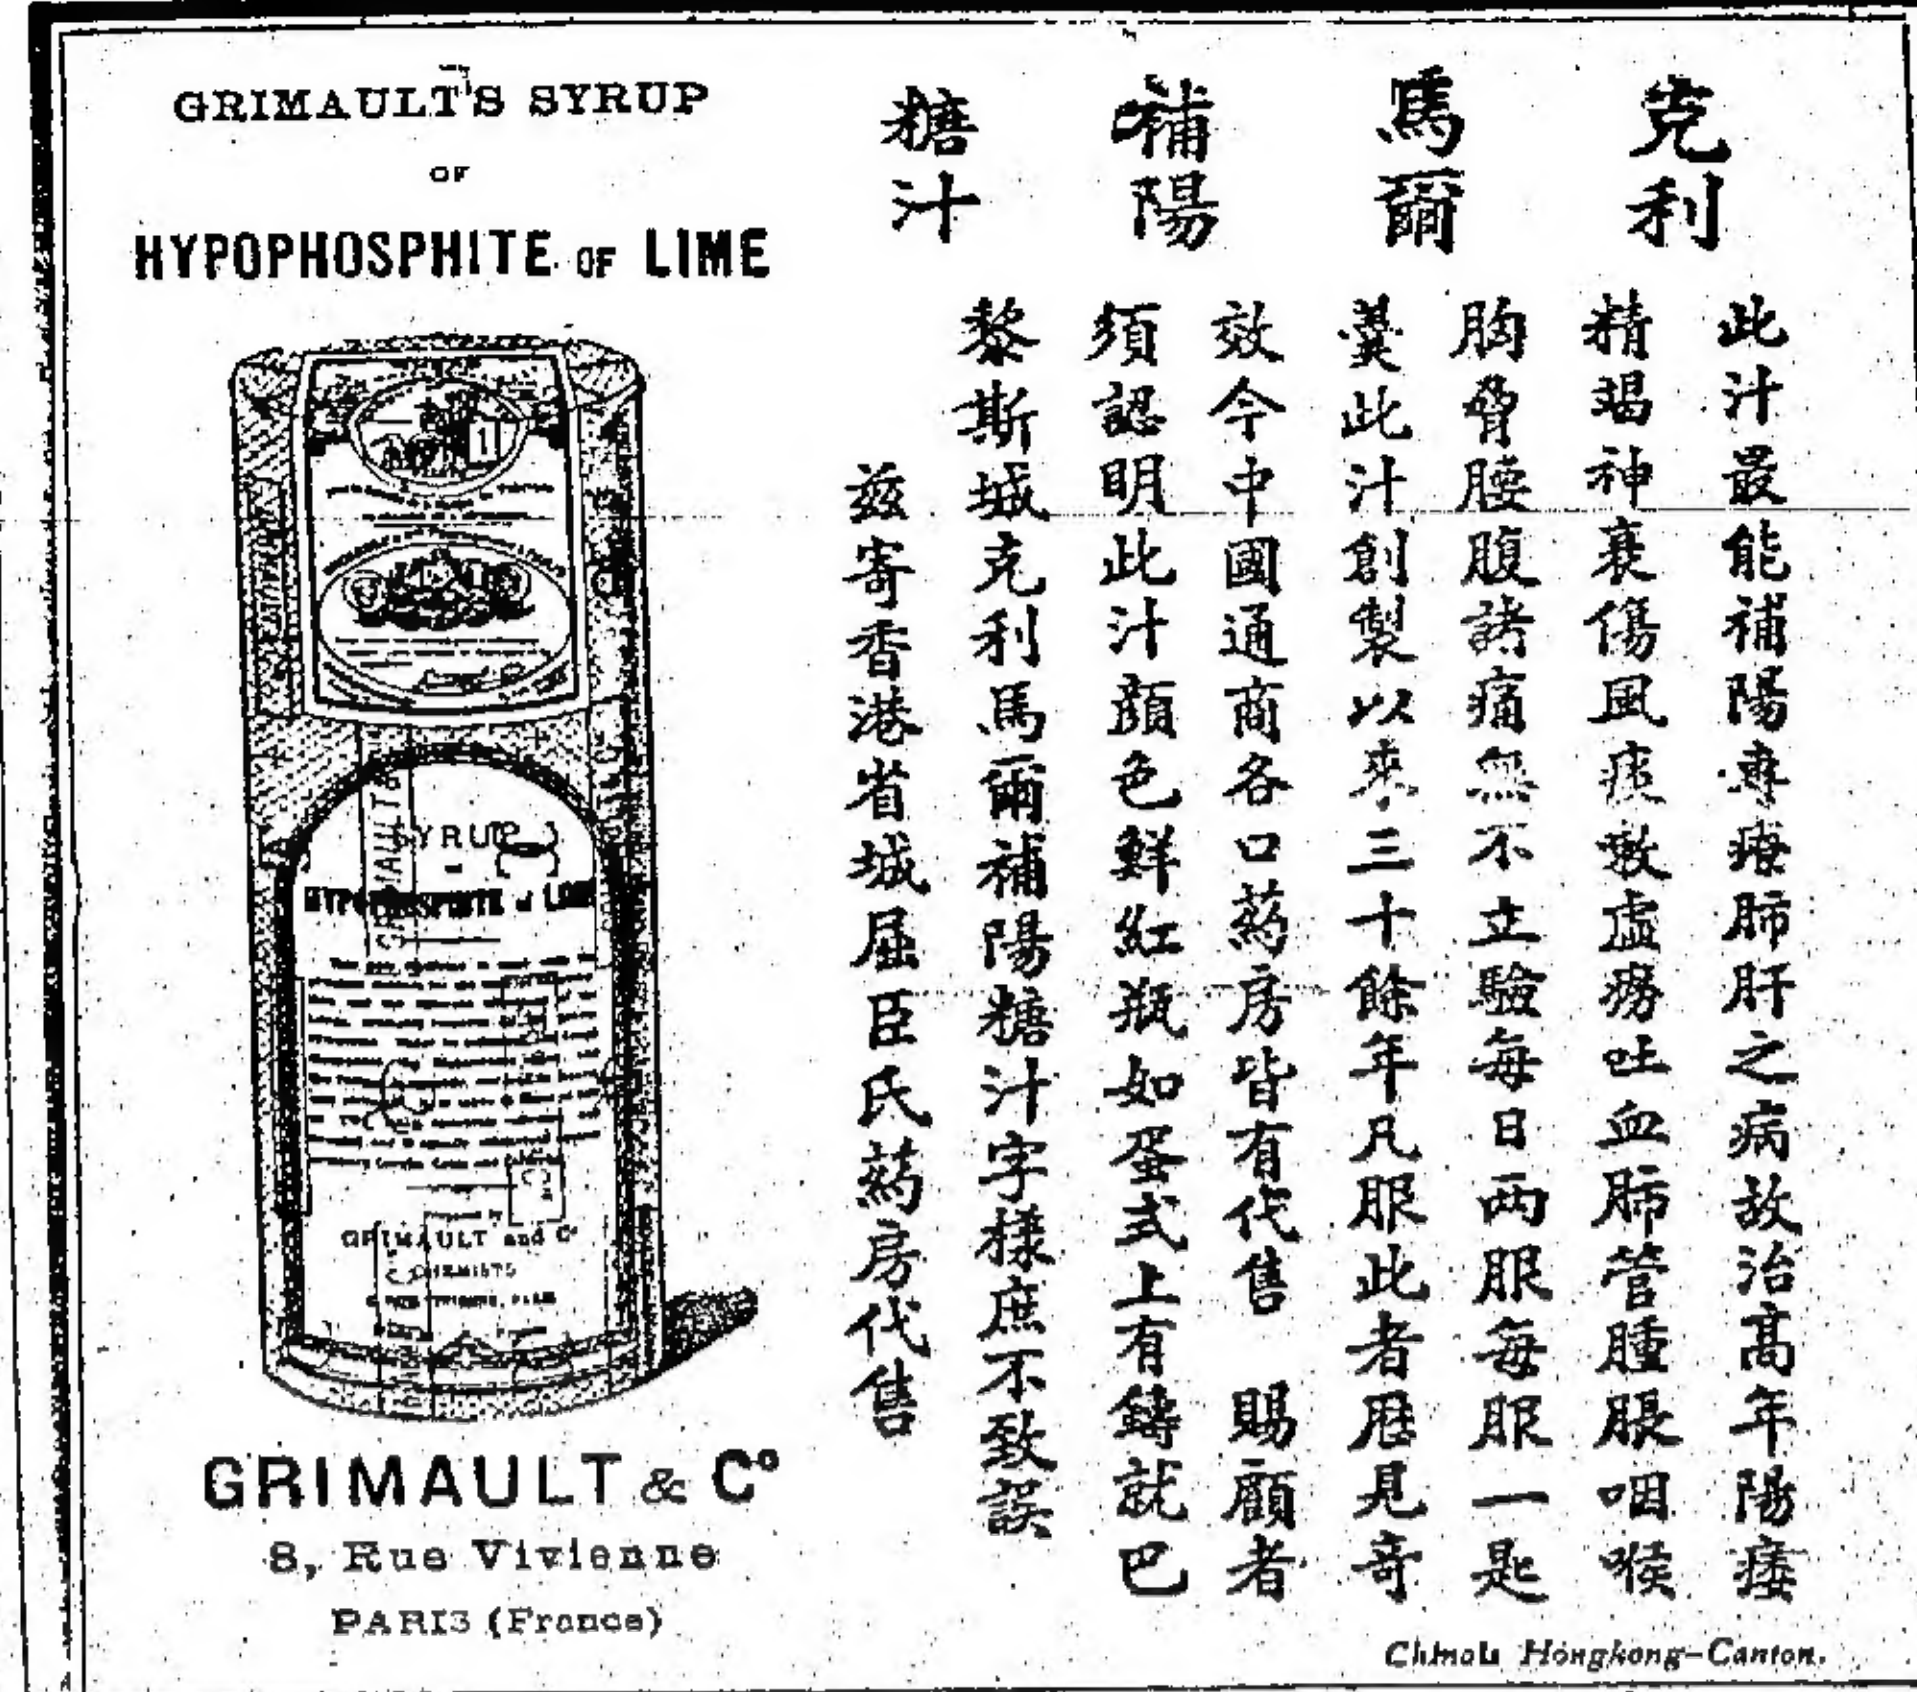 GRIMAULT'S SYRUP
OF
HYPOPHOSPHITE OF LIME
SYRUP
OF
HYPOPHOSPHITE of LIME
GRIMAULT
Prepared by
GRIMAULT and Cº
CHEMISTS
GRIMAULT & Cº
8, Rue Vivienne
PARIS (France)
克利
馬爾
補陽
糖汁
此汁最能補陽專療肺肝之病故治高年陽痿
精竭神衰傷風痰嗽虛癆吐血肺管腫脹咽喉
胸脅腰腹諸痛無不立驗每日两服每服一匙
羹此汁創製以來三十餘年凡服此者歷見奇
效今中國通商各口葯房皆有代售 賜顧者
須認明此汁顔色鮮紅瓶如蛋式上有鑄就巴
黎斯城克利馬爾補陽糖汁字樣庶不致誤
茲寄香港省城屈臣氏葯房代售
Chinois Hongkong-Canton.